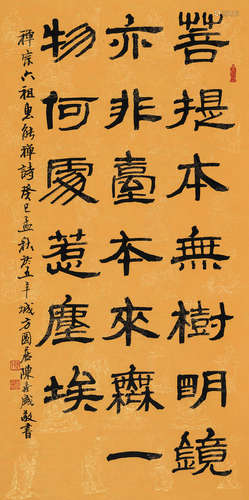 菩提本無樹明鏡
亦非臺本來橆一
物何處惹塵埃
禪宗六祖惠能禪詩癸巳孟秋於五羊城方圓居陳敬書